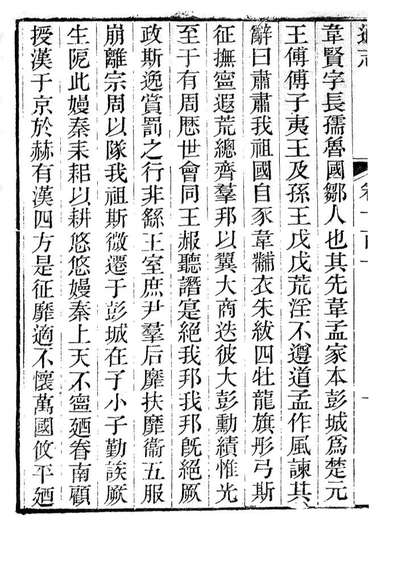 韋賢字長孺魯國鄒人也其先韋孟家本彭城爲楚元
王傅傅子夷王及孫王戊戊荒淫不遵道孟作風諫其
辭曰肅肅我祖國自豕韋黼衣朱紱四牡龍旗彤弓斯
征撫寧遐荒總齊羣邦以翼大商迭彼大彭勳績惟光
至于有周厯世會同王赧聽譖寔絕我邦我邦旣絕厥
政斯逸賞罰之行非繇王室庶尹羣后靡扶靡衞五服
崩離宗周以隊我祖斯微遷于彭城在予小子勤誒厥
生阨此嫚秦耒耜以耕悠悠嫚秦上天不寧廼眷南顧
授漢于京於赫有漢四方是征靡適不懷萬國攸平廼